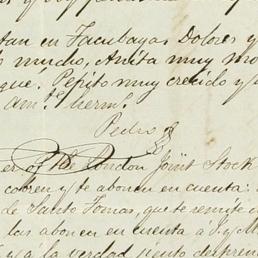 tan en Tacubaya Dolores y
mucho, Anita muy mo
que. Pepito muy crecido y
Am.te herm.
Pedro
London Joint Stock
cobren y te abonen en cuenta:
de Santo Tomas, que te remite
las abonen en cuenta a
y a la verdad siento despren